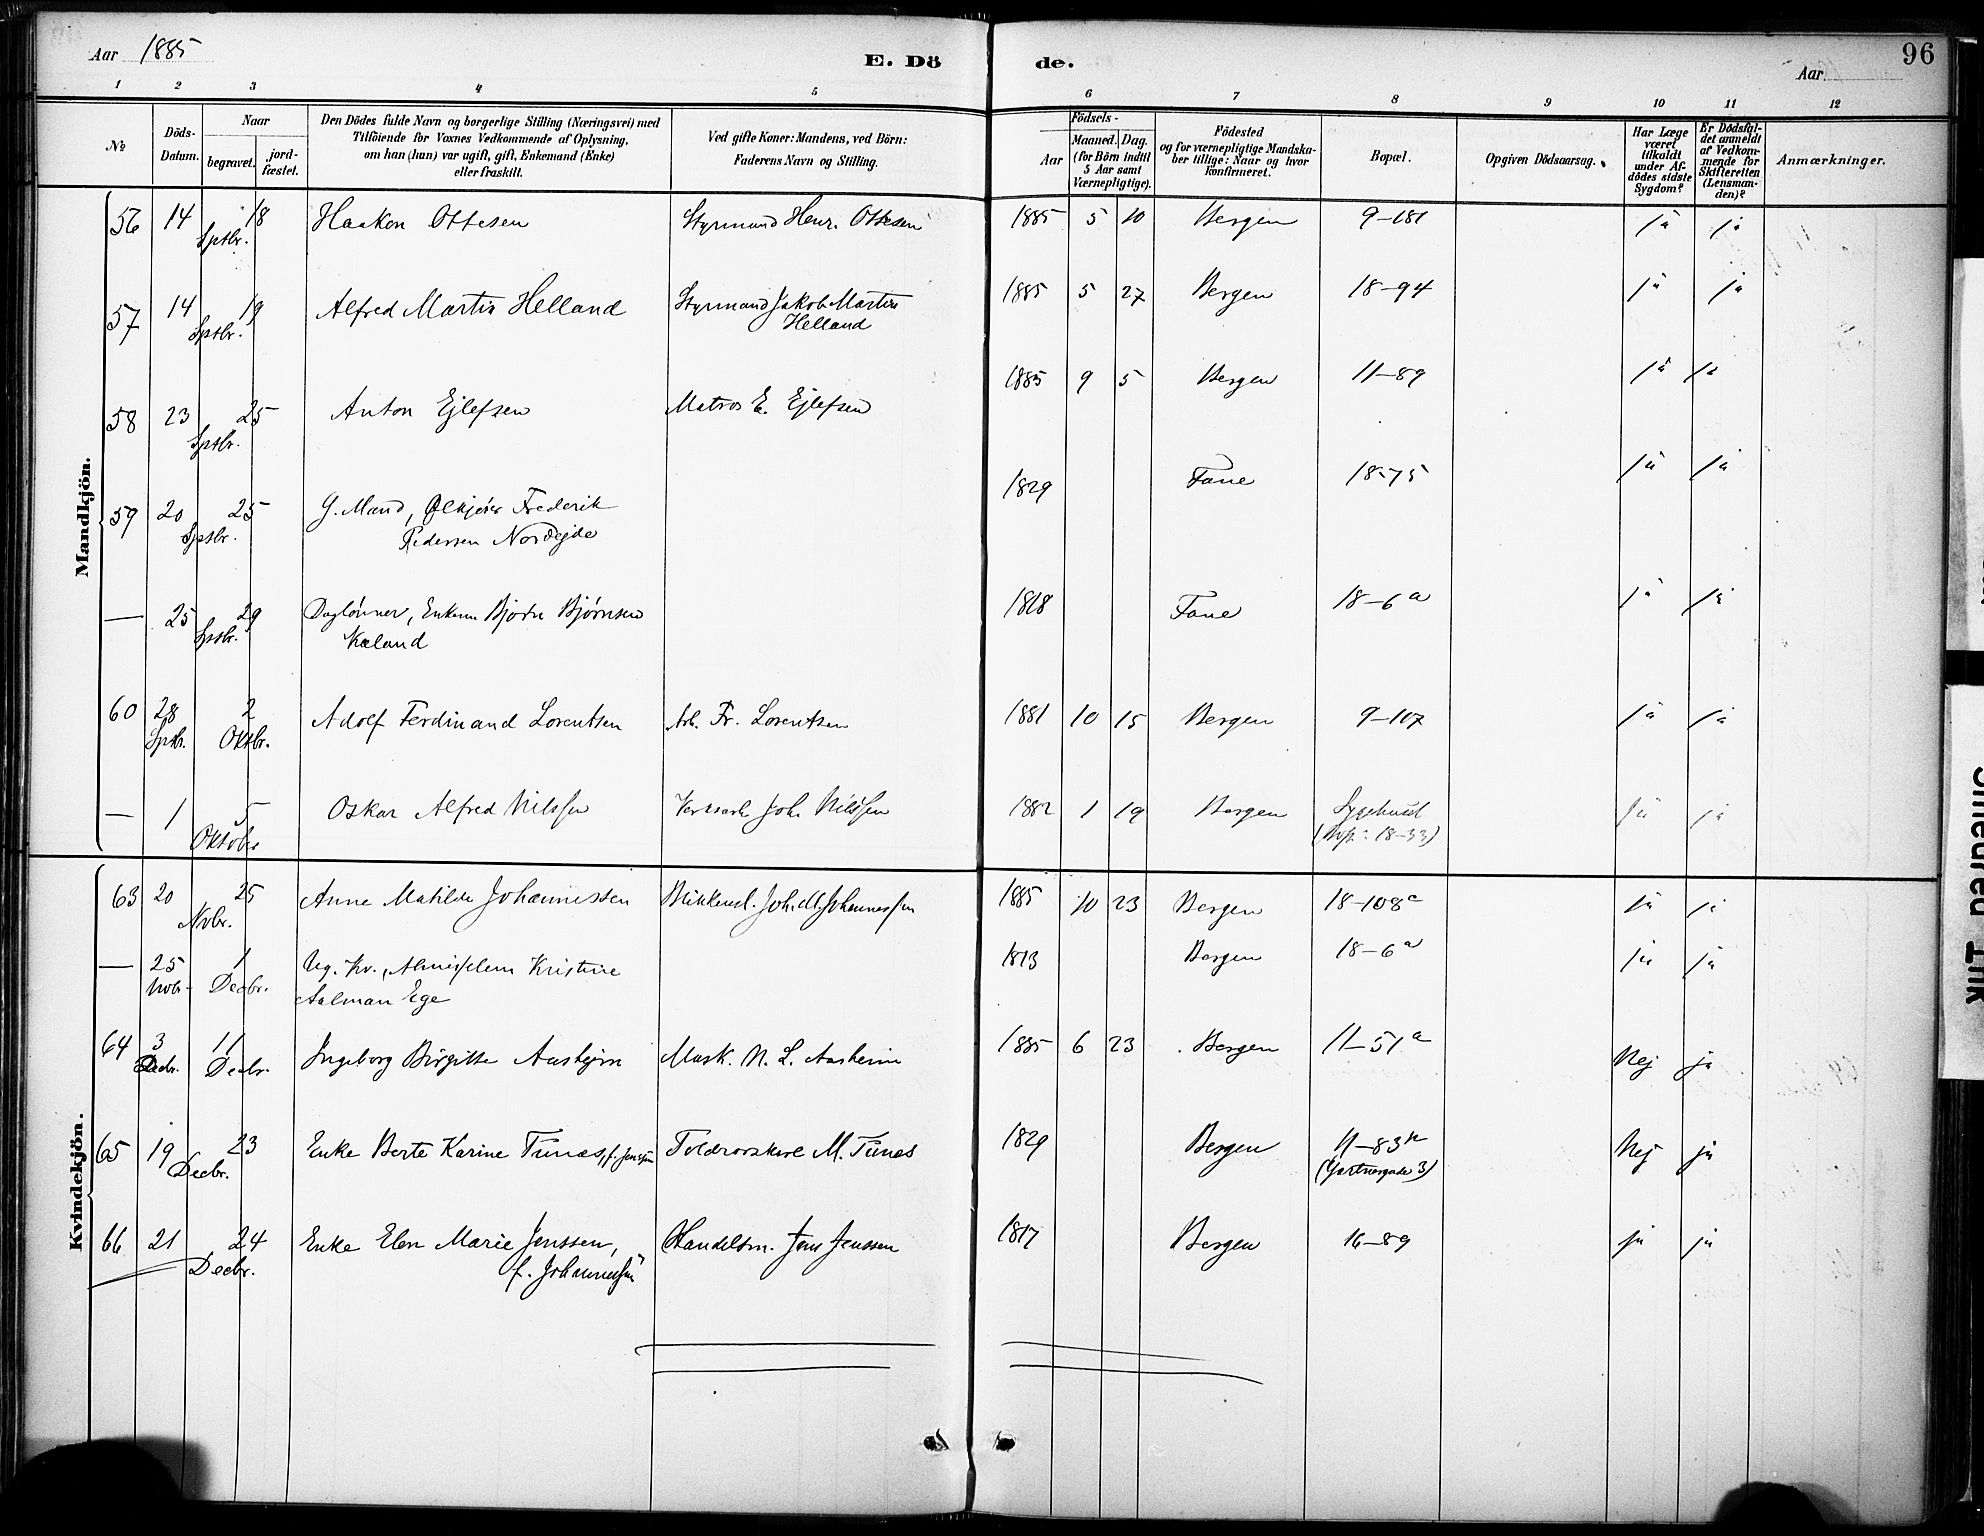 Aar 1885
E. Dö
de.
Aar
96
1 2 3 4 5 6 7 8 9 10 11 12
№
Döds-Datum.
Naar
begravet.
jord-fæstet.
Den Dödes fulde Navn og borgerlige Stilling (Næringsvei) med
Tilföiende for Voxnes Vedkommende af Oplysning,
om han (hun) var ugift, gift, Enkemand (Enke)
eller fraskilt.
Ved gifte Koner: Mandens, ved Börn:
Faderens Navn og Stilling.
Födsels-
Aar
Maaned.
Dag.
(for Börn indtil
5 Aar samt
Værnepligtige).
Födested
og for værnepligtige Mandska-
ber tillige: Naar og hvor
konfirmeret.
Bopæl.
Opgiven Dödsaarsag.
Har Læge
været
tilkaldt
under Af-
dödes sidste
Sygdom?
Er Dödsfal-
det anmeldt
af Vedkom-
mende for
Skifteretten
(Lensman-
den)?
Anmærkninger.
Mandkjön.
56 14 18 Haakon Ottesen Styrmand Henr. Ottesen 1885 5 10 Bergen 9-181 ja ja
Sptbr.
57 14 19 Alfred Martin Helland Styrmand Jakob Martin 1885 5 27 Bergen 18-94 ja ja
Sptbr. Helland
58 23 25 Anton Ejlefsen Matros E. Ejlefsen 1885 9 5 Bergen 11-89 ja ja
Sptbr.
59 20 25 G. Mand, Frederik 1829 Fane 18-75 ja ja
Sptbr. Pedersen
— 25 29 Daglønner, Enkem Bjørn Bjørnsen 1818 Fane 18-6a ja ja
Sptbr. Kaland
60 28 2 Adolf Ferdinand Lorentsen Arb. Fr. Lorentsen 1881 10 15 Bergen 9-107 ja ja
Sptbr. Oktbr.
— 1 5 Oskar Alfred Nilssen Joh. Nilssen 1882 1 19 Bergen Sygehuset ja ja
Oktober 18-33)
Kvindekjön.
63 20 25 Anne Matilde Johannessen Joh. M. Johannessen 1885 10 23 Bergen 18-108c ja ja
Nvbr.
— 25 1 Ug. Kv., Kristine 1813 Bergen 18-6a ja ja
Nvbr. Decbr. Aalman Ege
64 3 11 Ingeborg Birgitte Aasheim Mask. N. L. Aasheim 1885 6 23 Bergen 11-51a Nej ja
Decbr. Decbr.
65 19 23 Enke Berte Karine Tunæs, f. Jensen M. Tunes 1829 Bergen 11-83 Nej ja
Decbr. (Gartnergade 3)
66 21 24 Enke Elen Marie Jenssen, Handelsm. Jens Jenssen 1817 Bergen 16-89 ja ja
Decbr. f. Johannessen